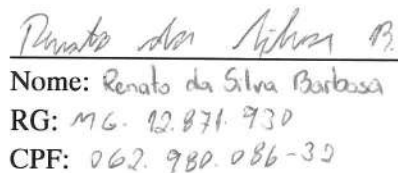 Renato da Silva B.
Nome: Renato da Silva Barbosa
RG: MG. 12.871.930
CPF: 062.980.086-32